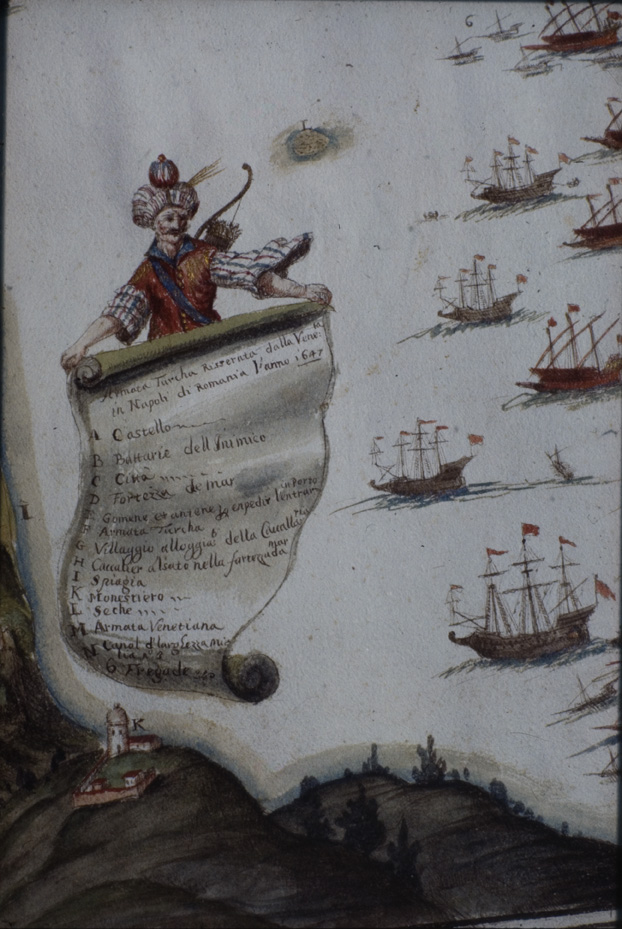 6
L
Armata Turcha Risserata dalla Vene:ta
in Napoli di Romania l'anno 1647
A Castello
B Battarie dell Inimico
C Città
D Fortezza da mar
E Gomene et antene per impedir l'entrar in Porto
F Armata Turcha
G Villaggio alloggio della Cavallaria
H Cavalier alsato nella fortezza da mar
I Spiagia
K Monestiero
L Seche
M Armata Venetiana
N Canal d'larghezza mi:
O Fregade
I
K